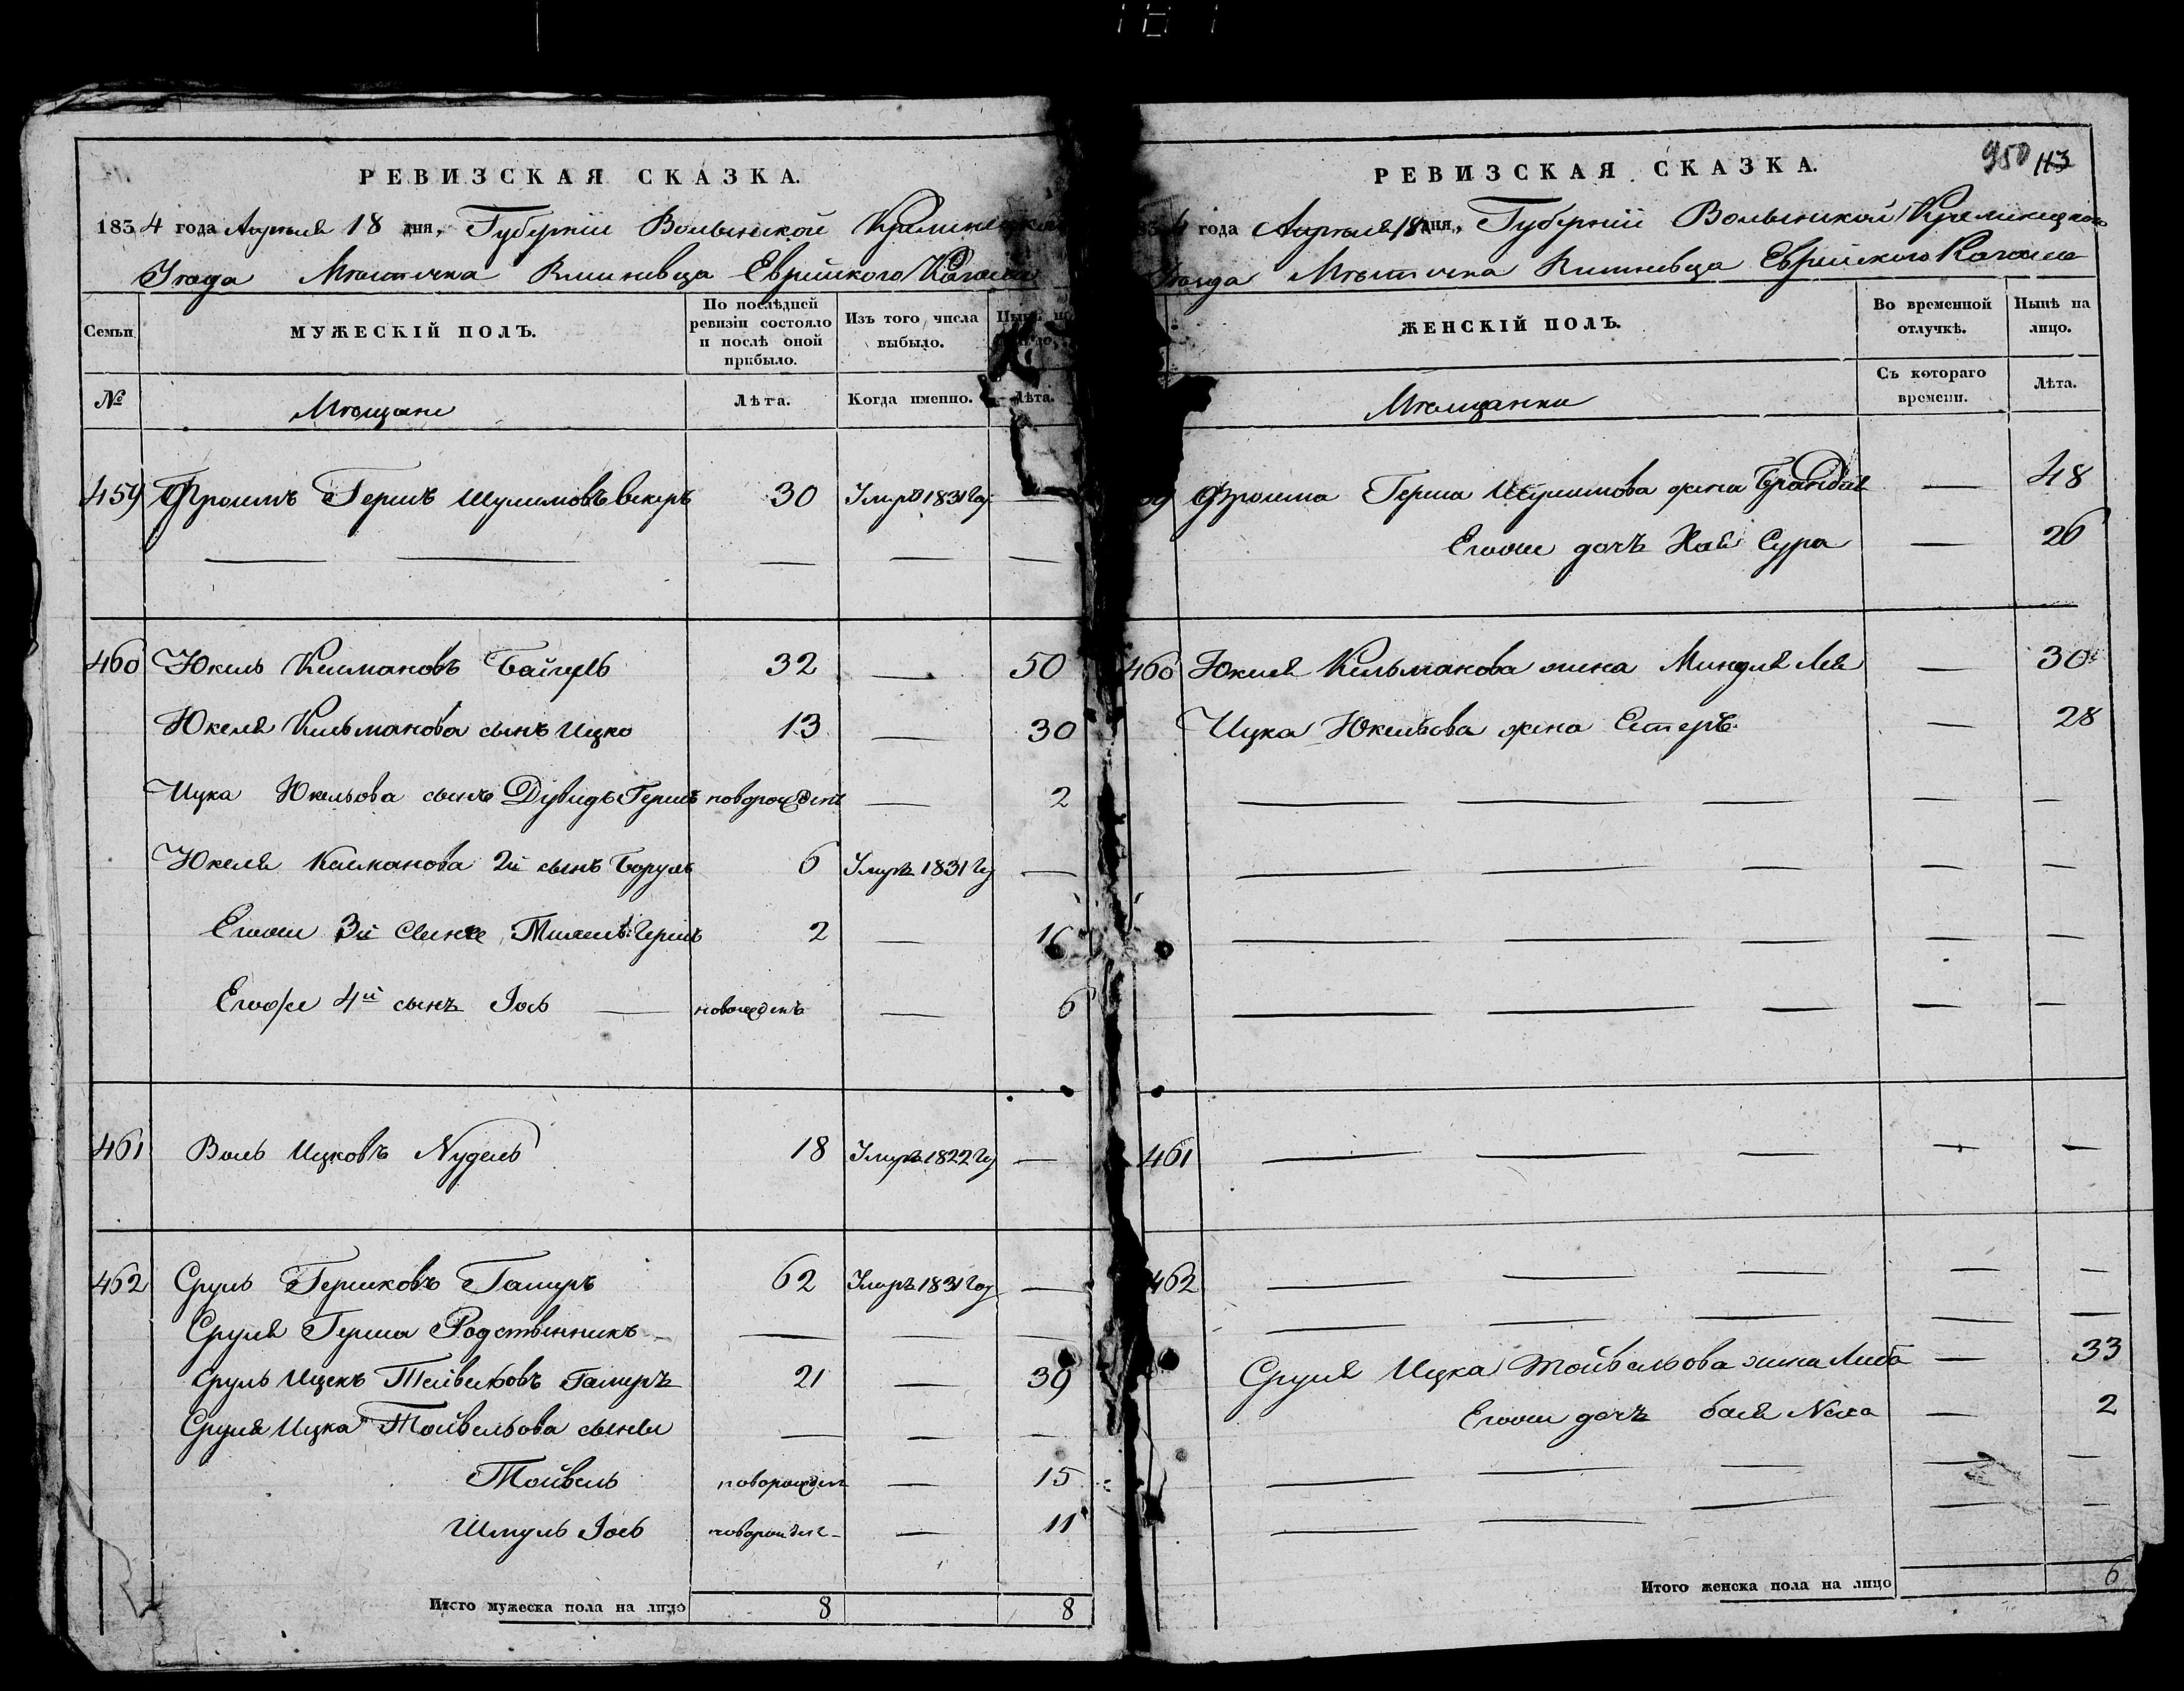 РЕВИЗСКАЯ СКАЗКА.
1834 года Апреля 18 дня, Губернии Волынской Кременецкого
Уезда Мѣстечка Вишневца Еврейского Кагала
Семьи
МУЖЕСКІЙ ПОЛЪ.
По послѣдней ревизіи состояло и послѣ оной прибыло.
Изъ того числа выбыло.
Нынѣ на лицо.
№
Мѣщане
Лѣта.
Когда именно.
Лѣта.
459 Фроимъ Гершъ Шулимовъ 30 Умеръ 1831 год —
— — — — —
460 Юкель Келмановъ 32 — 50
Юкеля Кельманова сынъ Ицко 13 — 30
Ицка Юкельова сынъ Дувидъ Гершъ новорожденъ — 2
Юкеля Калманова 2й сынъ Борухъ 6 Умеръ 1831 год —
Егоже 3й сынъ Гершъ 2 — 16
Егоже 4й сынъ Іось — новорожденъ — 6
461 Воль Ицковъ Nудель 18 Умеръ 1822 год —
462 Сруль Гершковъ Гамеръ 62 Умеръ 1831 год —
Сруля Герша Родственникъ — — —
Сруль Ицекъ Тейвеловъ Гамеръ 21 — 39
Сруля Ицка Тойвельова сыны — — —
Тойвель новорожден — 15
Шмуль Іось новорожден — 11
Итого мужеска пола на лицо 8 8
950 113
РЕВИЗСКАЯ СКАЗКА.
1834 года Апреля 18 дня, Губернии Волынской Кременецкого
Уезда Мѣстечка Вишневца Еврейского Кагала
ЖЕНСКІЙ ПОЛЪ.
Во временной отлучкѣ.
Нынѣ на лицо.
Мѣщанки
Съ котораго времени.
Лѣта.
459 Фроима Герша Шулимова жена Брандля — 48
Егоже дочъ Хая Сура — 26
460 Юкеля Кельманова жена Миндля Лея — 30
Ицка Юкельова жена Естеръ — 28
— — — — —
— — — — —
— — — — —
— — — — —
461 — — — — —
462 — — — — —
— — — — —
Сруля Ицка Тойвельова жена Либа — 33
Егоже дочъ Бася Nеха — 2
— — — — —
— — — — —
Итого женска пола на лицо 6